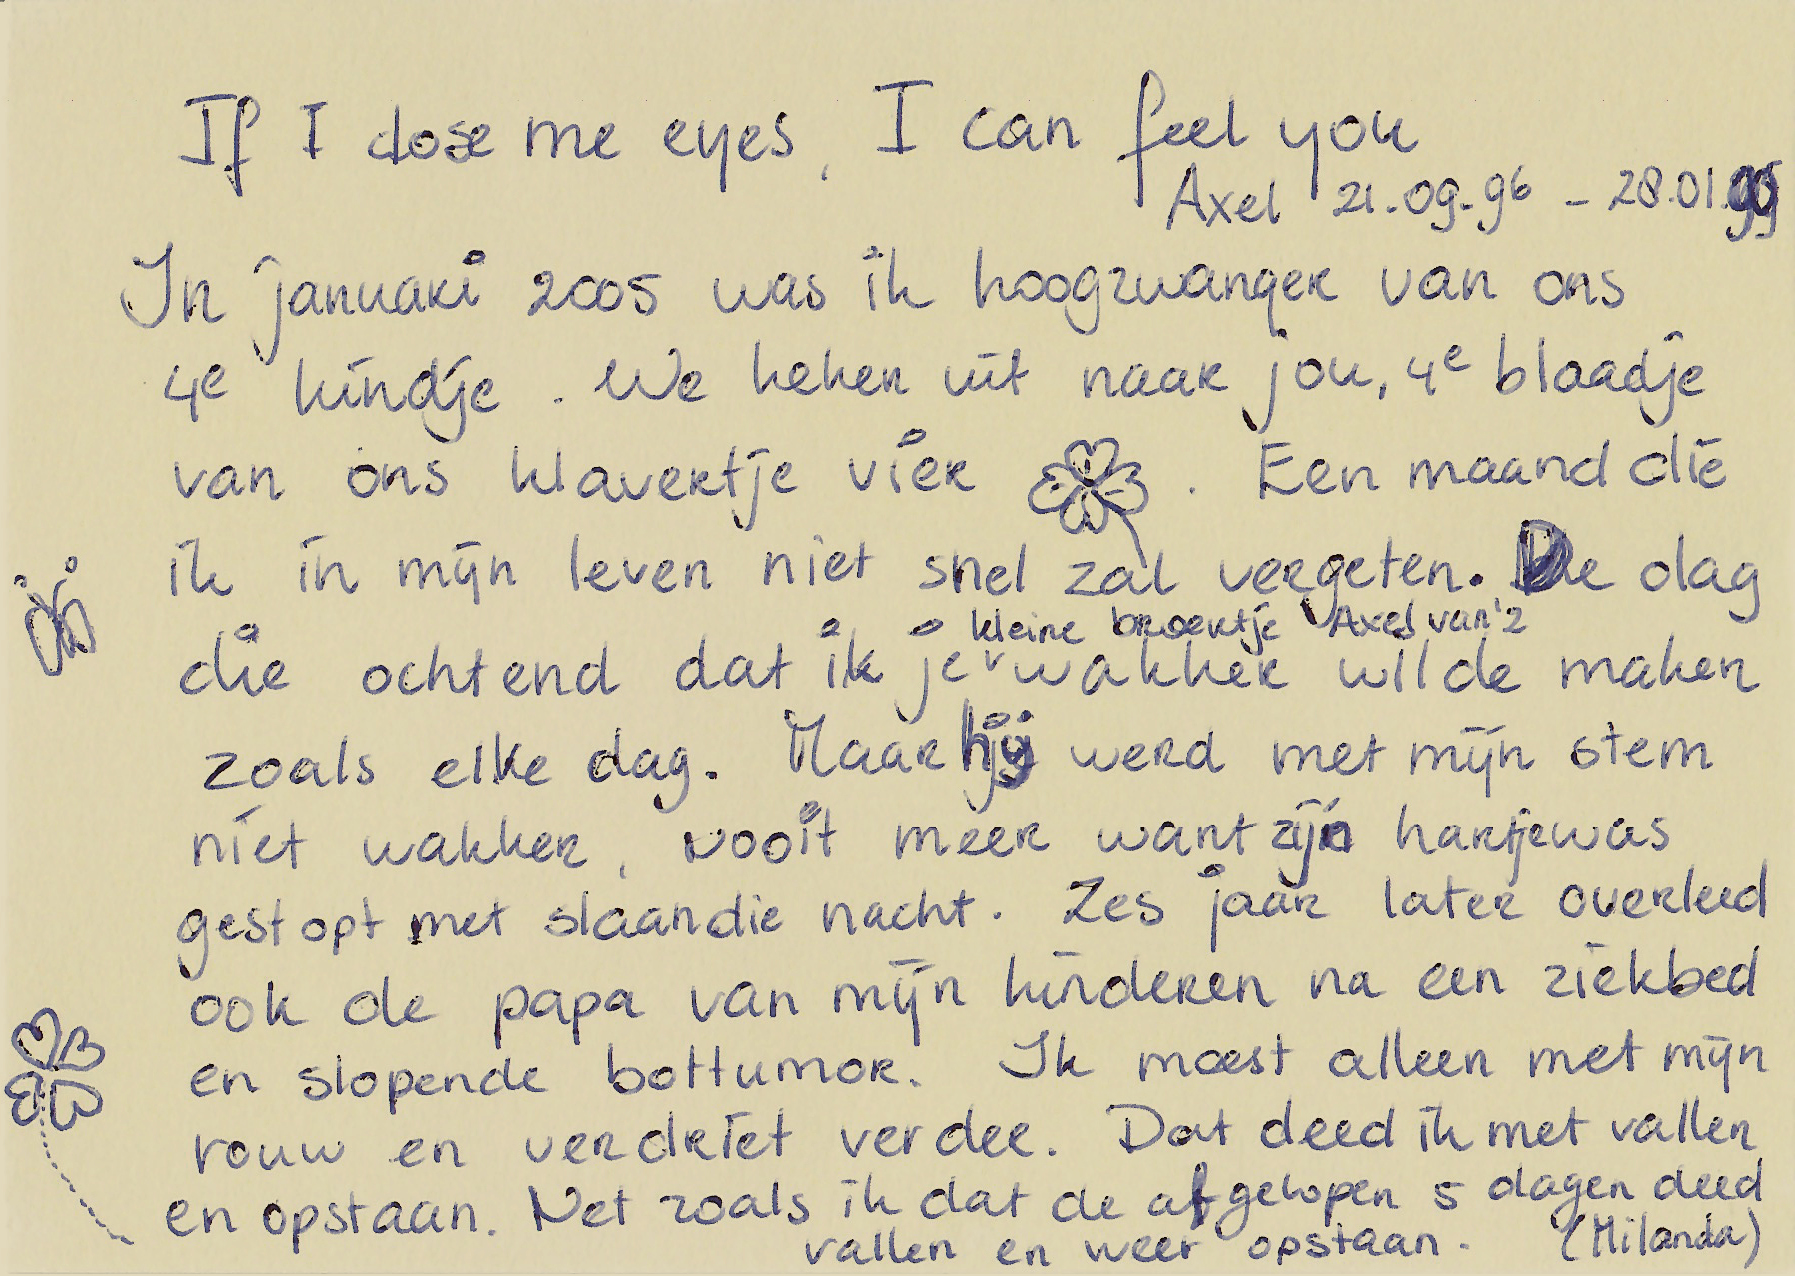 If I close me eyes, I can feel you
Axel 21.09.96 - 28.01.99
In januari 2005 was ik hoogzwanger van ons
4e kindje. We keken uit naar jou, 4e blaadje
van ons klavertje vier . Een maand die
ik in mijn leven niet snel zal vergeten. De dag
kleine broertje Axel van '2
die ochtend dat ik je wakker wilde maken
zoals elke dag. Maar hij werd met mijn stem
niet wakker, nooit meer want zijn hartje was
gestopt met slaan die nacht. Zes jaar later overleed
ook de papa van mijn kinderen na een ziekbed
en slopende bottumor. Ik moest alleen met mijn
rouw en verdriet verder. Dat deed ik met vallen
en opstaan. Net zoals ik dat de afgelopen 5 dagen deed
vallen en weer opstaan. (Milanda)